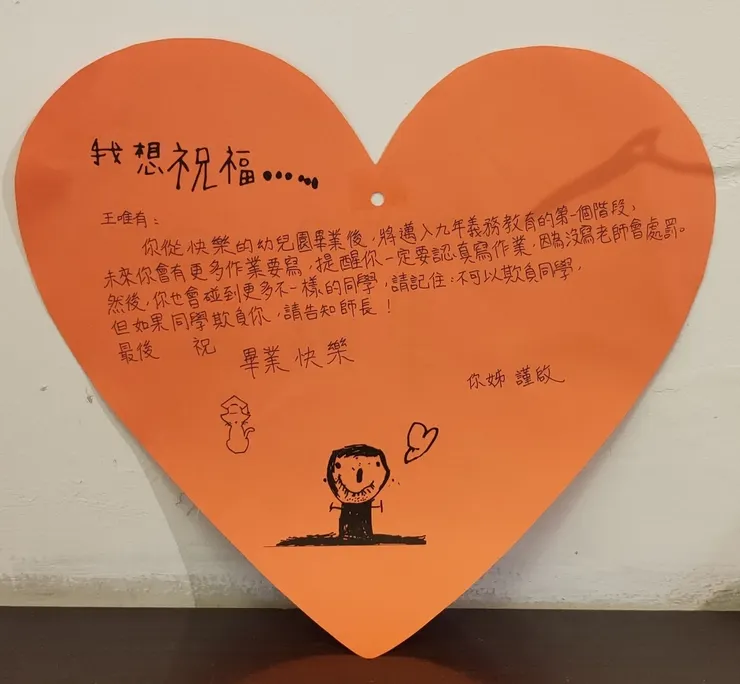 我想祝福⋯⋯
王唯有：
你從快樂的幼兒園畢業後，將邁入九年義務教育的第一個階段，
未來你會有更多作業要寫，提醒你一定要認真寫作業，因為沒寫老師會處罰。
然後，你也會碰到更多不一樣的同學，請記住，不可以欺負同學，
但如果同學欺負你，請告知師長！
最後 祝
畢業快樂
你姊 謹啟